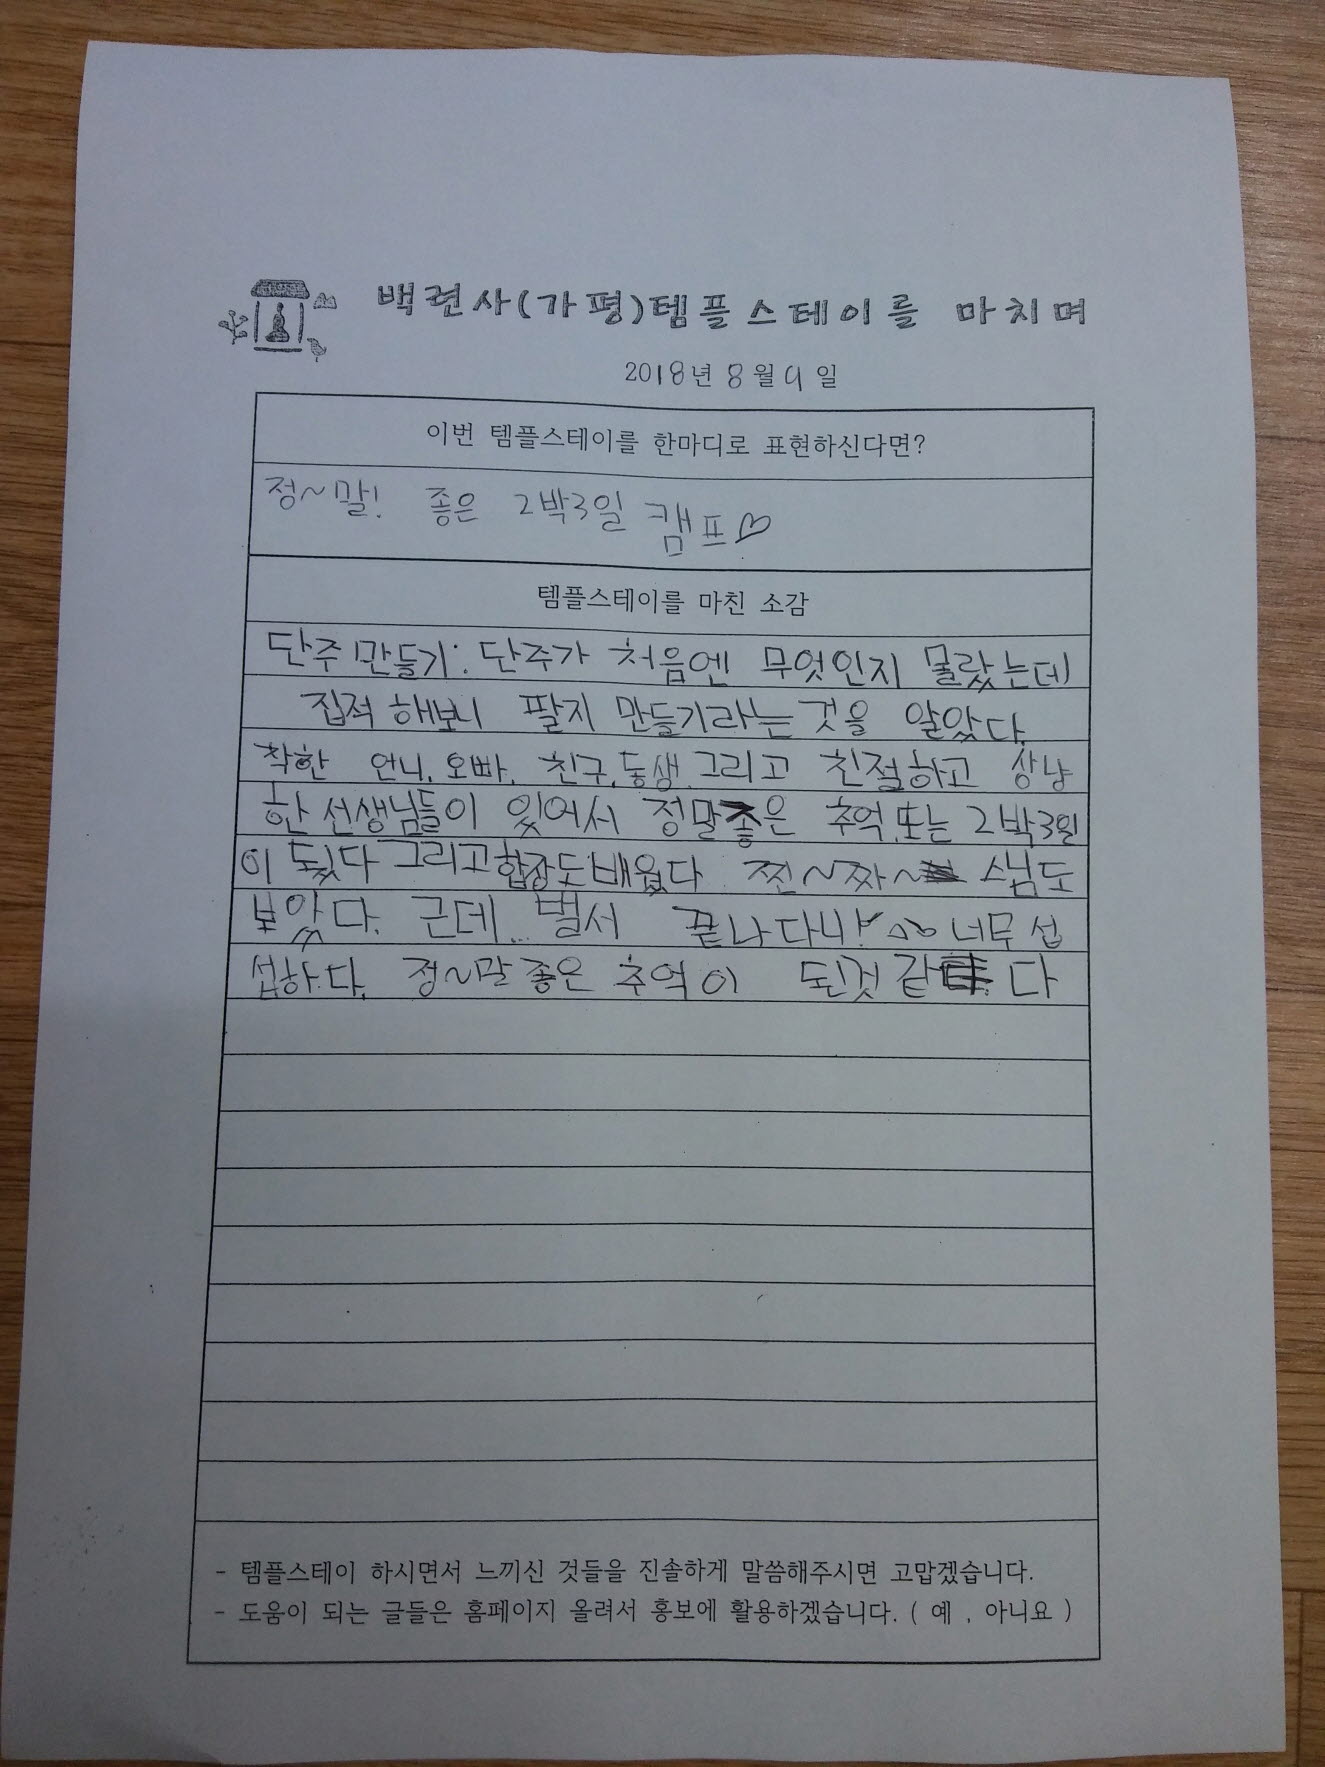 백련사(가평)템플스테이를 마치며
2018년 8월 9일
이번 템플스테이를 한마디로 표현하신다면?
정~말! 좋은 2박3일 캠프♡
템플스테이를 마친 소감
단주 만들기: 단주가 처음엔 무엇인지 몰랐는데
집적 해보니 팔지 만들기라는 것을 알았다.
착한 언니, 오빠, 친구, 동생 그리고 친절하고 상냥
한 선생님들이 있어서 정말좋은 추억,또는 2박3일
이 됬다 그리고합장도배웠다 찐~짜~ 스님도
보았다. 근데... 벌써 끝나다니! 너무 섭
섭하다. 정~말좋은 추억이 된것 같 다
- 템플스테이 하시면서 느끼신 것들을 진솔하게 말씀해주시면 고맙겠습니다.
- 도움이 되는 글들은 홈페이지 올려서 홍보에 활용하겠습니다. ( 예 , 아니요 )